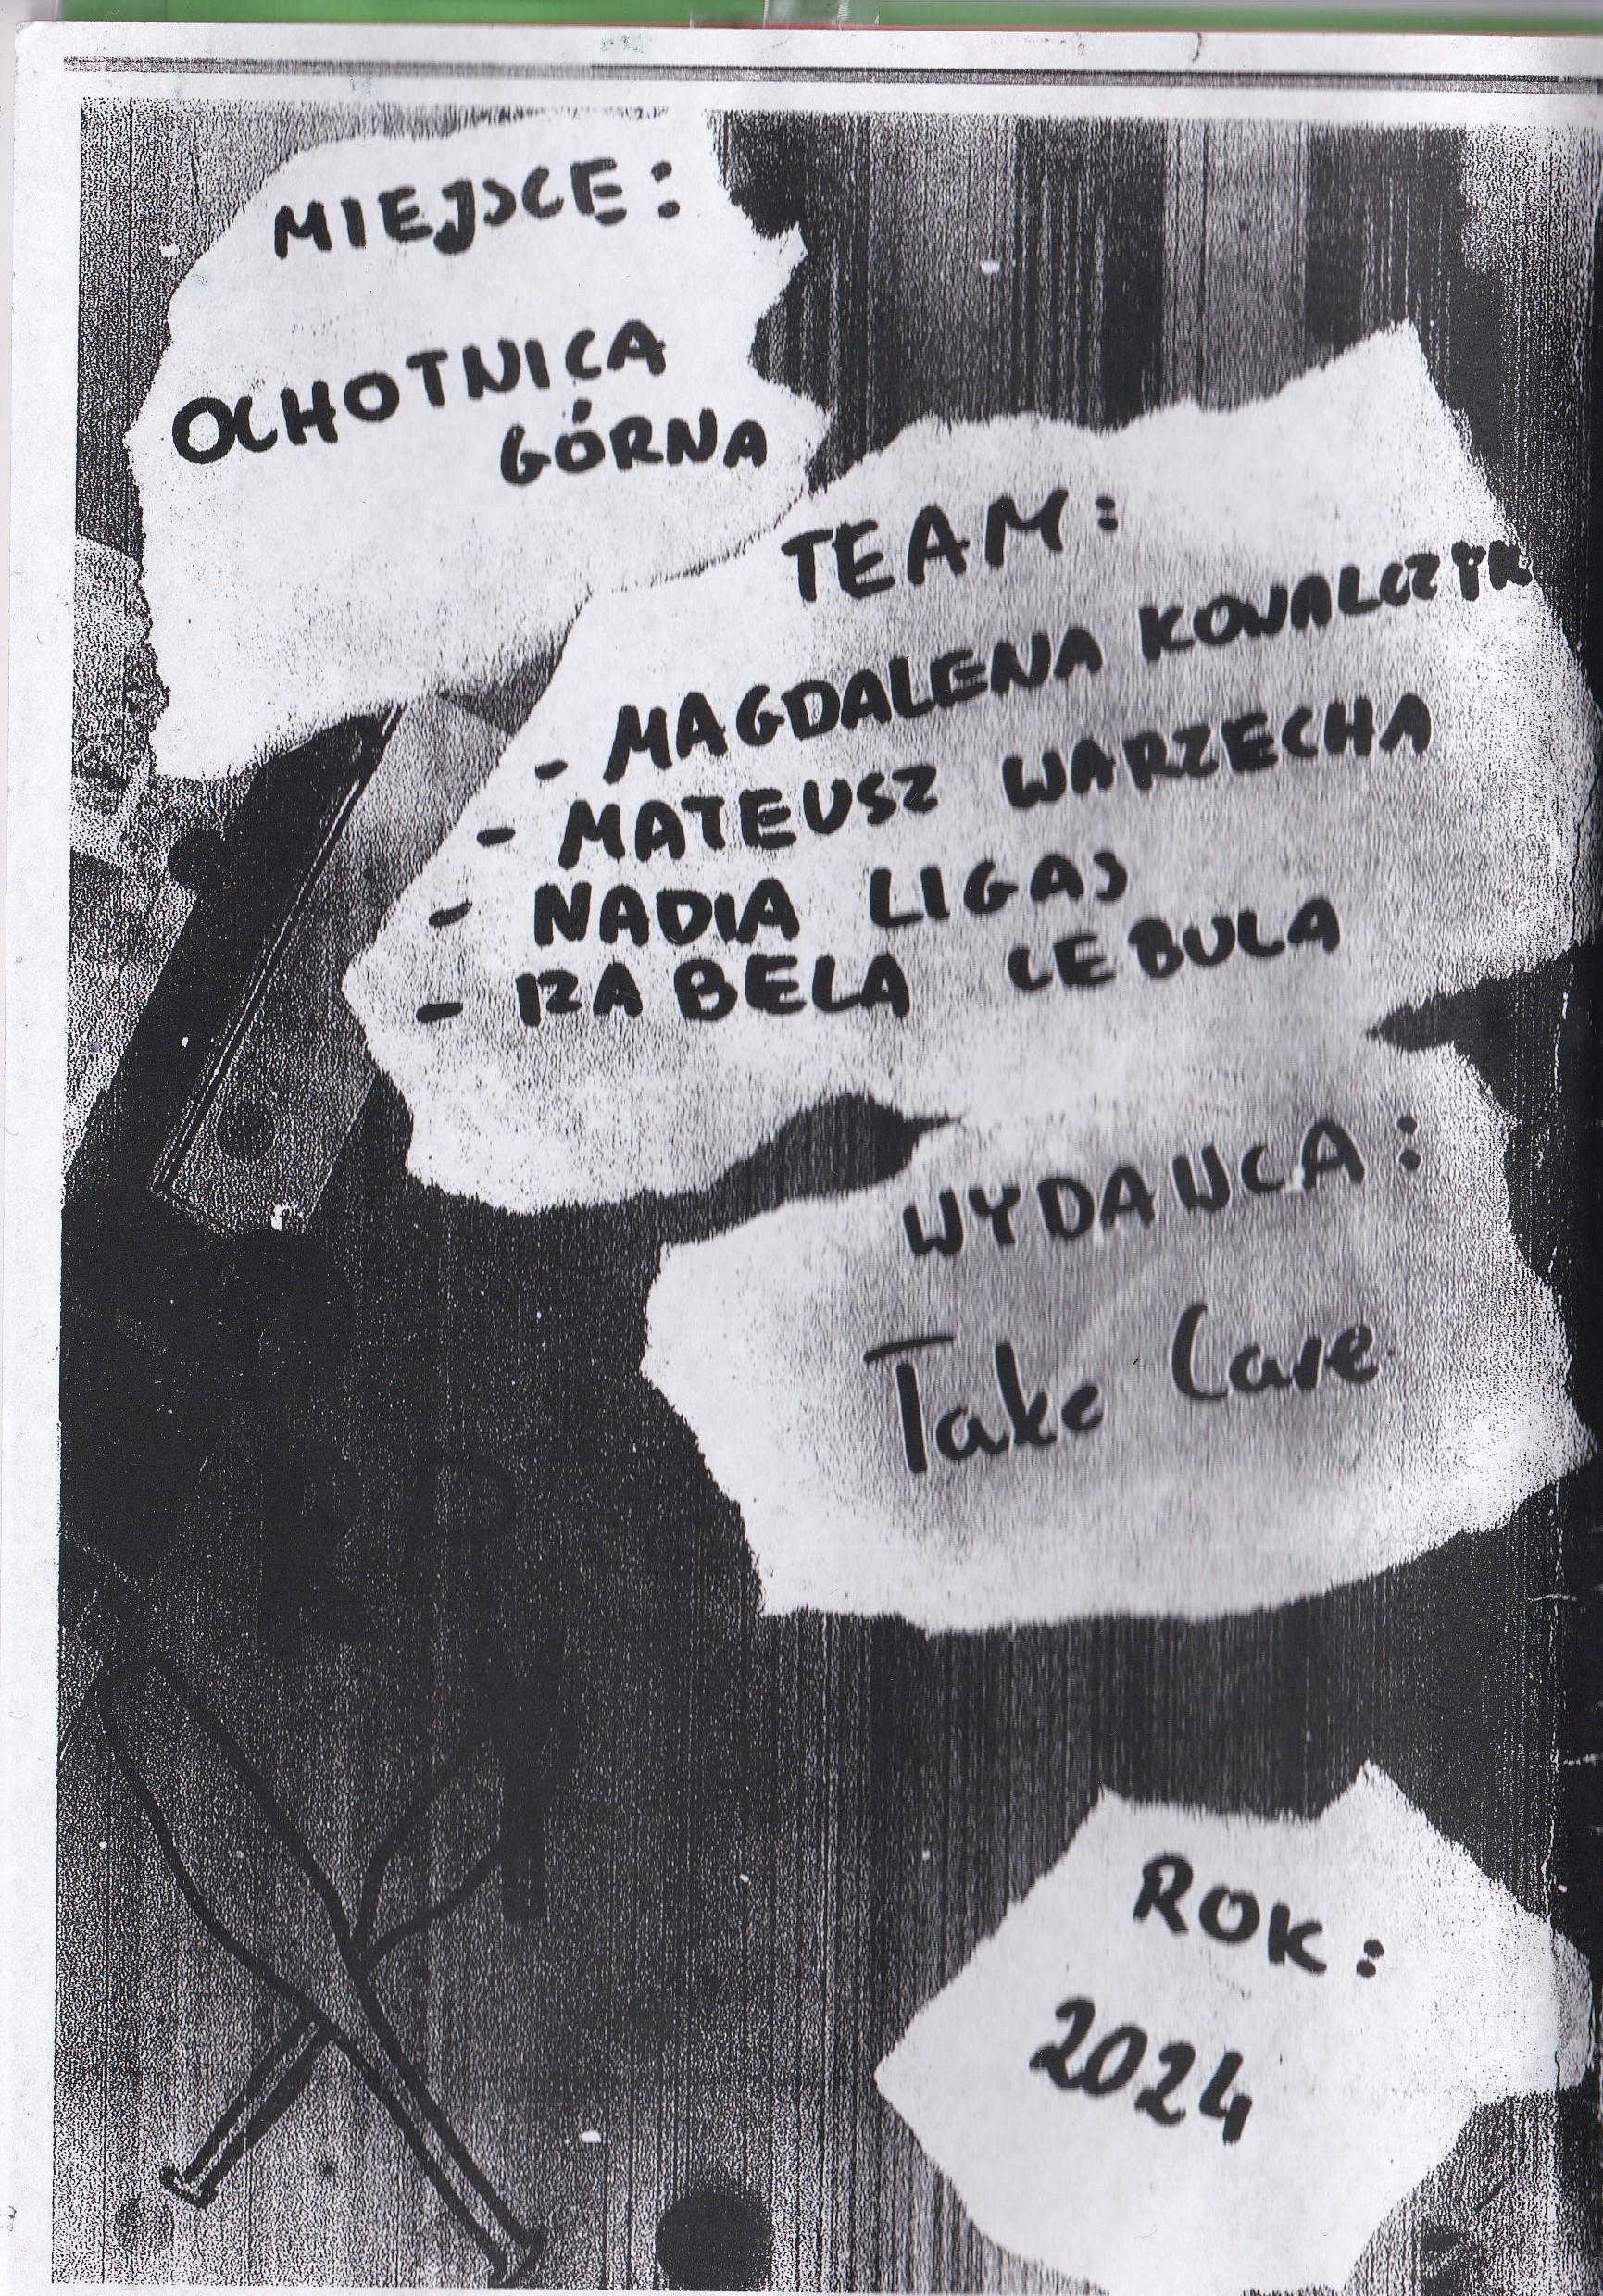 MIEJSCE:
OCHOTNICA
GÓRNA
TEAM:
- MAGDALENA KOWALCZYK
- MATEUSZ WARZECHA
- NADIA LIGAS
- IZABELA CEBULA
WYDAWCA:
Take Care
ROK:
2024